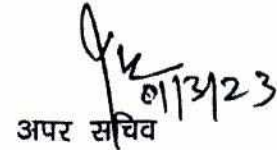 01/3/23
अपर सचिव